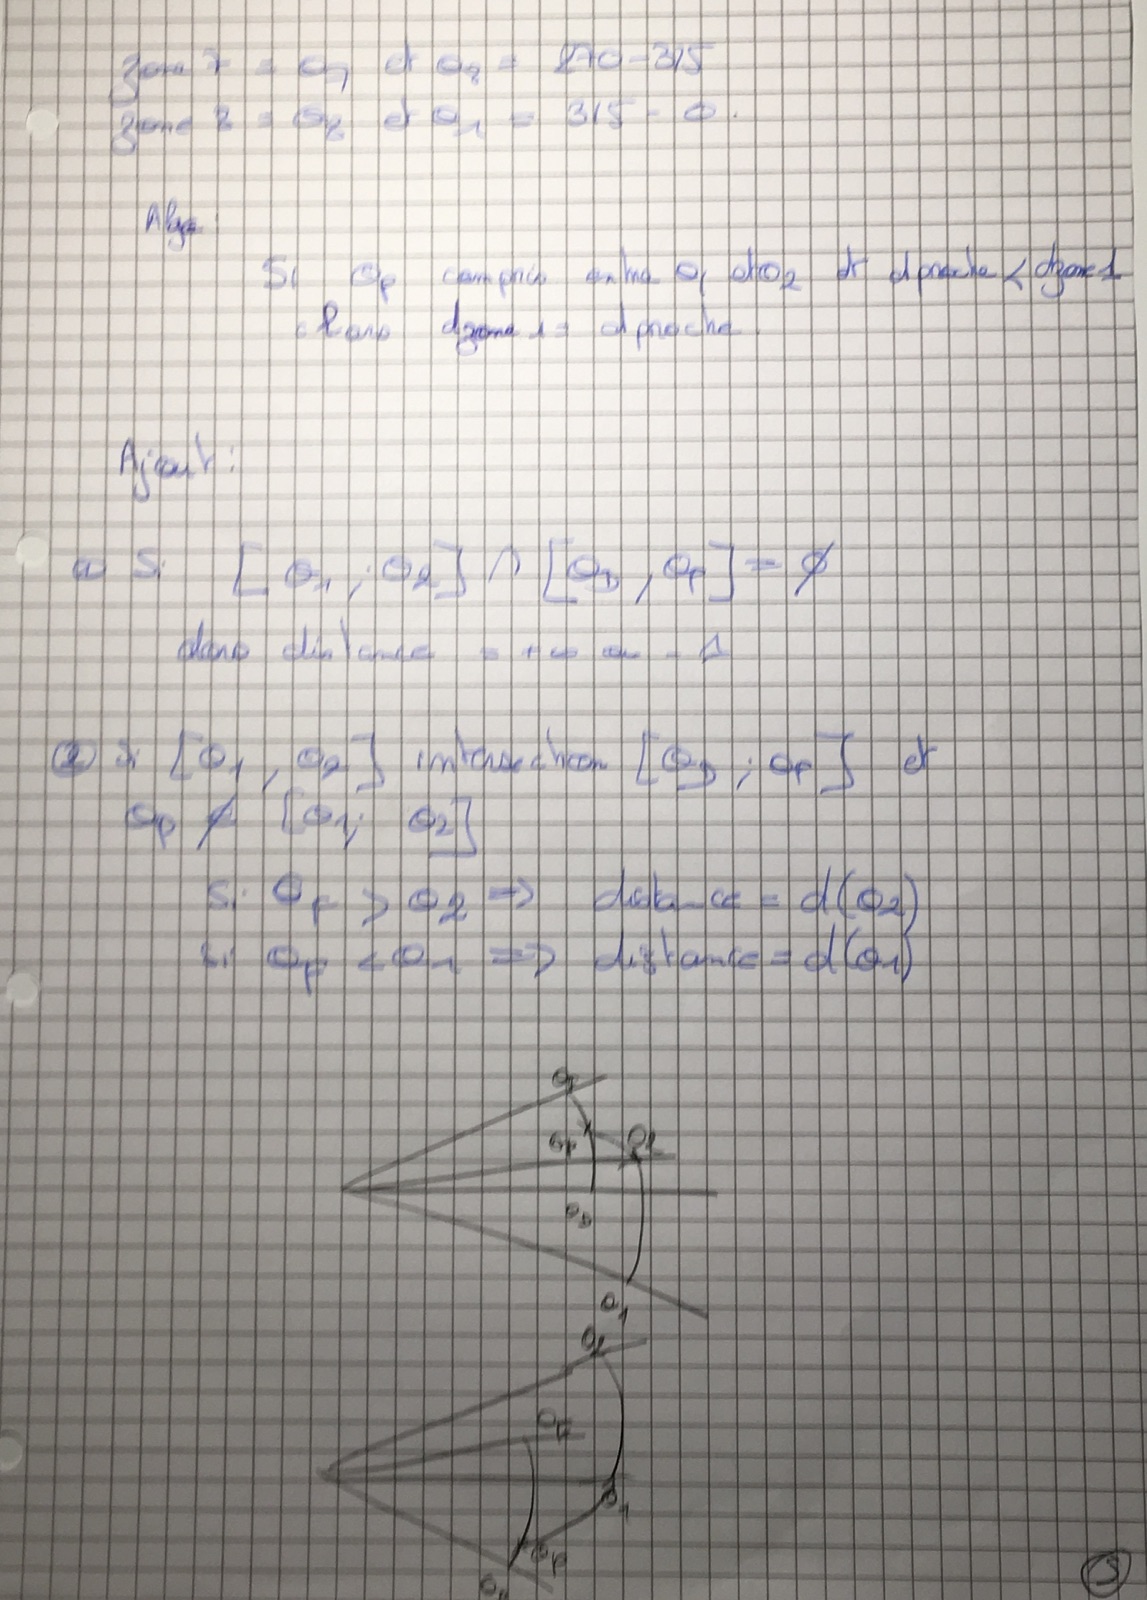 zone 7 = θ7 et θ8 = 270-315
zone 8 = θ8 et θ1 = 315 - 0.
Algo:
Si θp compris entre θ1 et θ2 et dproche < dzone1
alors dzone1 = dproche.
Ajout:
① Si [θ1 ; θ2] ∩ [θD , θF] = ∅
alors distance = +∞ ou -1
② Si [θ1 , θ2] intersection [θD ; θF] et
θp ∉ [θ1; θ2]
Si θp > θ2 => distance = d(θ2)
Si θp < θ1 => distance = d(θ1)
θF
θp θ2
θD
θ1
θ2
θF
θ1
θp
θD
5